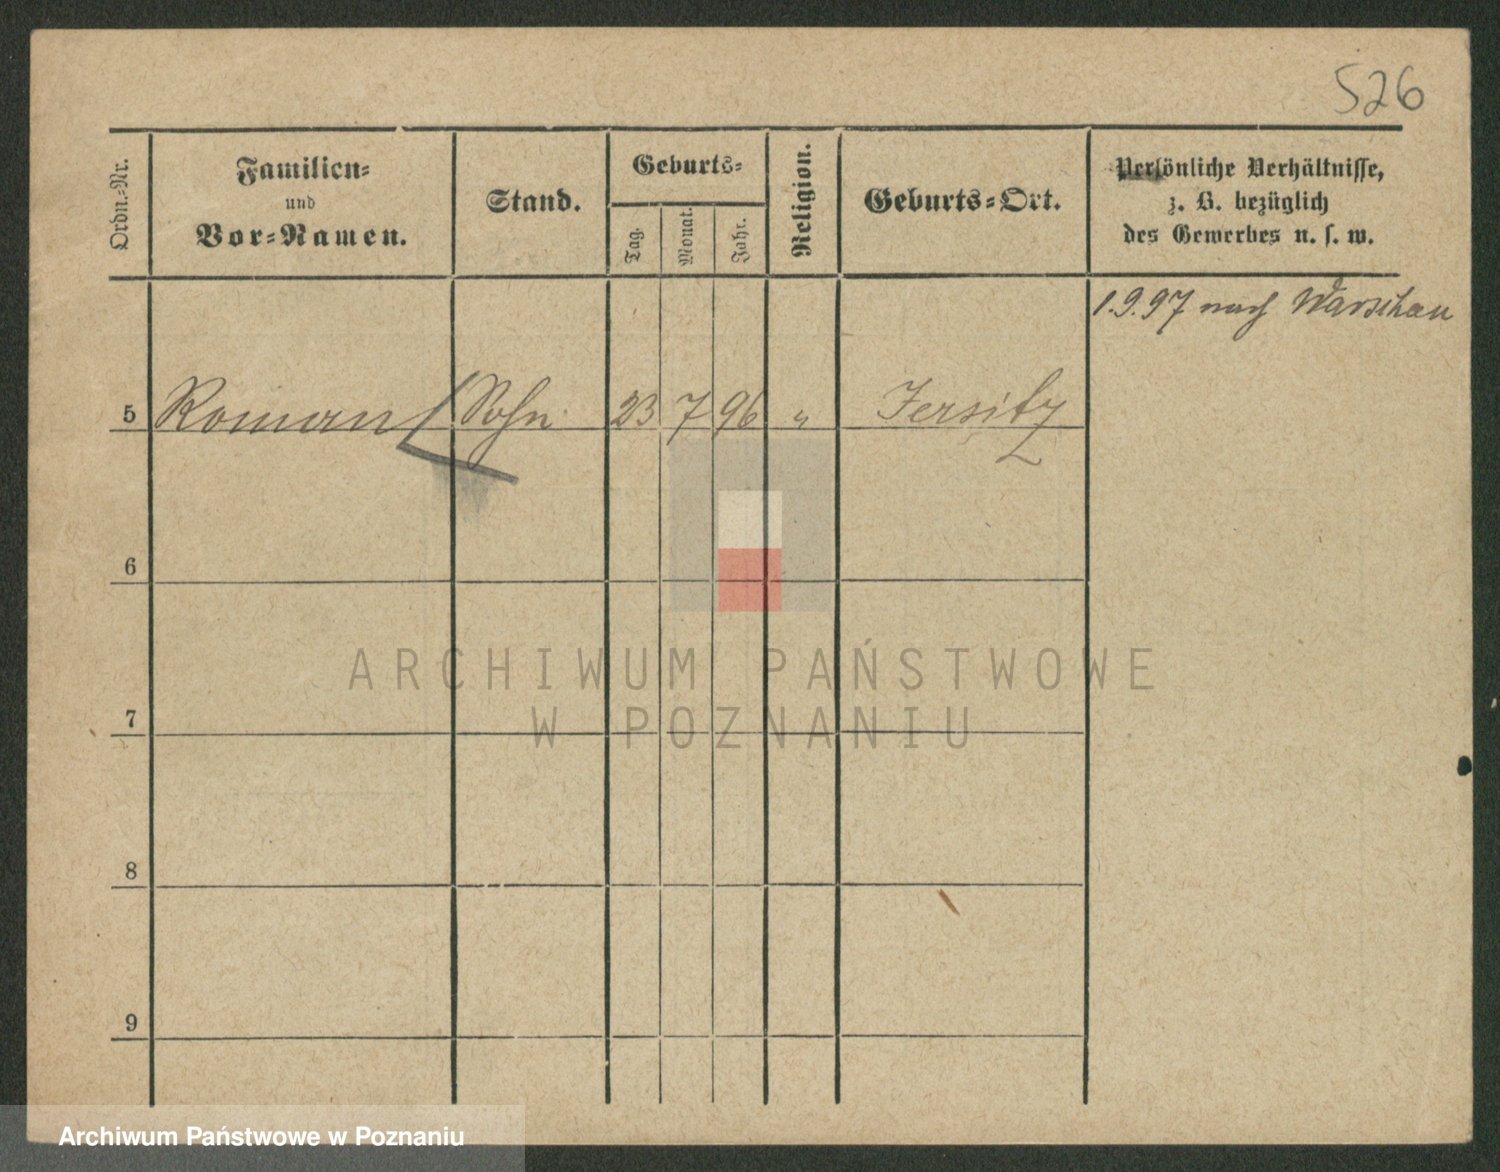 526
Ordn.-Nr.
Familien-
und
Vor-Namen.
Stand.
Geburts-
Tag.
Monat.
Jahr.
Religion.
Geburts-Ort.
Persönliche Verhältnisse,
z. B. bezüglich
des Gewerbes u. s. w.
1.9.97 nach Warschau
5 Roman Sohn 23 7 96 " Jersitz
6
7
8
9
ARCHIWUM PAŃSTWOWE
W POZNANIU
Archiwum Państwowe w Poznaniu